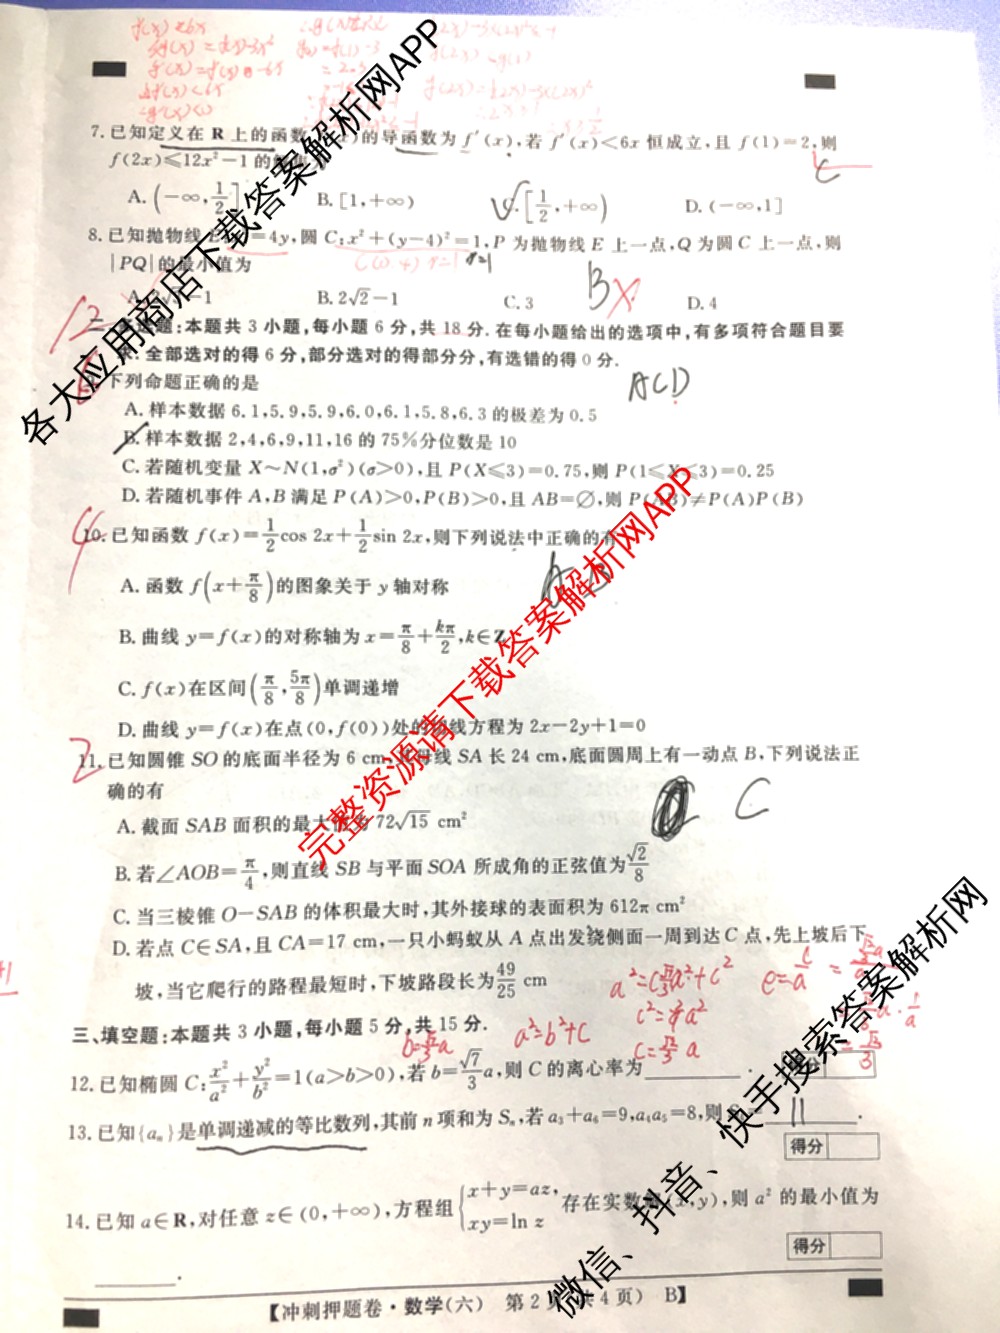 7. 已知定义在 R 上的函数 的导函数为 f′(x), 若 f′(x)<6x 恒成立, 且 f(1)=2, 则
f(2x)≤12x²-1 的
A. (-∞, 1/2]  B. [1,+∞)  C. [1/2,+∞)  D. (-∞,1]
C
8. 已知抛物线 =4y, 圆 C: x²+(y-4)²=1, P 为抛物线 E 上一点, Q 为圆 C 上一点, 则
|PQ| 的最小值为
r=1
A. -1  B. 2√2-1  C. 3  D. 4
B
12
题: 本题共 3 小题, 每小题 6 分, 共 18 分. 在每小题给出的选项中, 有多项符合题目要
求. 全部选对的得 6 分, 部分选对的得部分分, 有选错的得 0 分.
下列命题正确的是
ACD
A. 样本数据 6.1, 5.9, 5.9, 6.0, 6.1, 5.8, 6.3 的极差为 0.5
B. 样本数据 2, 4, 6, 9, 11, 16 的 75%分位数是 10
C. 若随机变量 X~N(1,σ²)(σ>0), 且 P(X≤3)=0.75, 则 P(1≤X≤3)=0.25
D. 若随机事件 A, B 满足 P(A)>0, P(B)>0, 且 AB=∅, 则 P(AB)≠P(A)P(B)
4
10. 已知函数 f(x)=1/2 cos 2x+1/2 sin 2x, 则下列说法中正确的有
A. 函数 f(x+π/8) 的图象关于 y 轴对称
B. 曲线 y=f(x) 的对称轴为 x=π/8+kπ/2, k∈Z
C. f(x) 在区间 (π/8, 5π/8) 单调递增
D. 曲线 y=f(x) 在点(0, f(0))处的切线方程为 2x-2y+1=0
2
11. 已知圆锥 SO 的底面半径为 6 cm, 母线 SA 长 24 cm, 底面圆周上有一动点 B, 下列说法正
确的有
C
A. 截面 SAB 面积的最大值为 72√15 cm²
B. 若∠AOB=π/4, 则直线 SB 与平面 SOA 所成角的正弦值为 √2/8
C. 当三棱锥 O-SAB 的体积最大时, 其外接球的表面积为 612π cm²
D. 若点 C∈SA, 且 CA=17 cm, 一只小蚂蚁从 A 点出发绕侧面一周到达 C 点, 先上坡后下
坡, 当它爬行的路程最短时, 下坡路段长为 49/25 cm
三、填空题: 本题共 3 小题, 每小题 5 分, 共 15 分.
a²=b²+c
12. 已知椭圆 C: x²/a²+y²/b²=1(a>b>0), 若 b=√7/3 a, 则 C 的离心率为 .
13. 已知{aₙ}是单调递减的等比数列, 其前 n 项和为 Sₙ, 若 a₃+a₆=9, a₄a₅=8, 则 = 11 .
得分
14. 已知 a∈R, 对任意 z∈(0,+∞), 方程组 {x+y=az, xy=ln z 存在实数解(x,y), 则 a² 的最小值为
得分
.
【冲刺押题卷·数学(六) 第 2 共 4 页) B】
各大应用商店下载答案解析网APP
完整资源请下载答案解析网APP
微信、抖音、快手搜索答案解析网